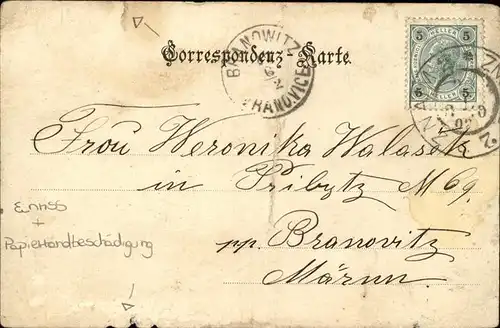 Correspondenz-Karte.
BRANOWITZ
VRANOVICE
5 HELLER 5
5 HELLER 5
ZNAIM
Frou Weronika Walasek
in Pribytz M 69.
pp. Branovitz
Märrn.
Einriss
+
Papierrandbeschädigung